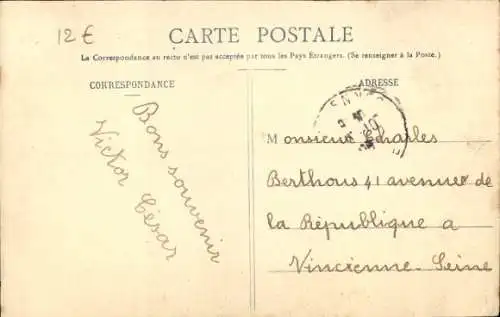 12€
CARTE POSTALE
La Correspondance au recto n'est pas acceptée par tous les Pays Étrangers. (Se renseigner à la Poste.)
CORRESPONDANCE
ADRESSE
Bons souvenir
Victor César
Monsieur Charles
Berthous 41 avenue de
la République a
Vincienne. Seine